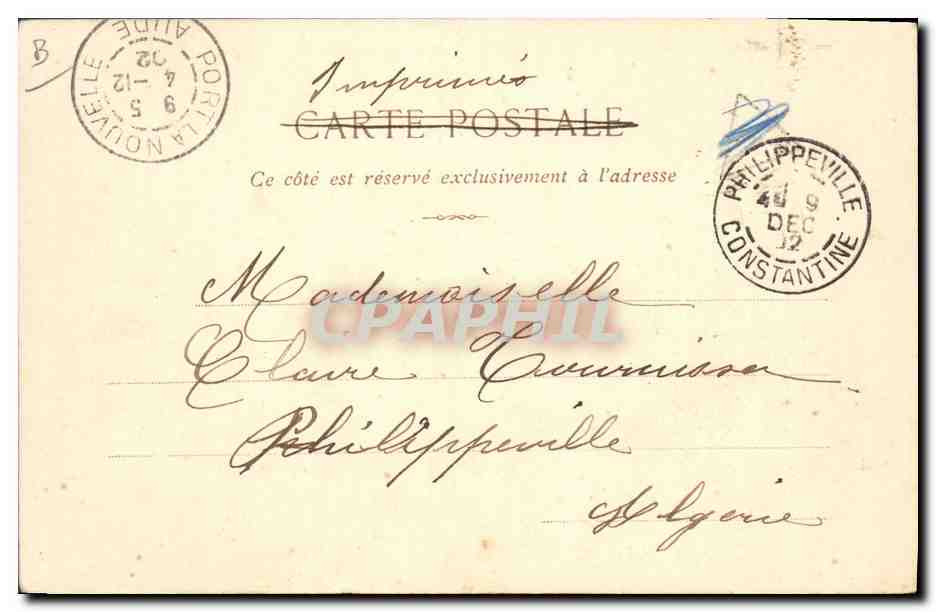 B
PORT-LA-NOUVELLE
AUDE
9 5
4 -12
02
Imprimés
CARTE POSTALE
Ce côté est réservé exclusivement à l'adresse
PHILIPPEVILLE
9
DEC
02
CONSTANTINE
Mademoiselle
CPAPHIL
Claire
Philippeville
Algérie